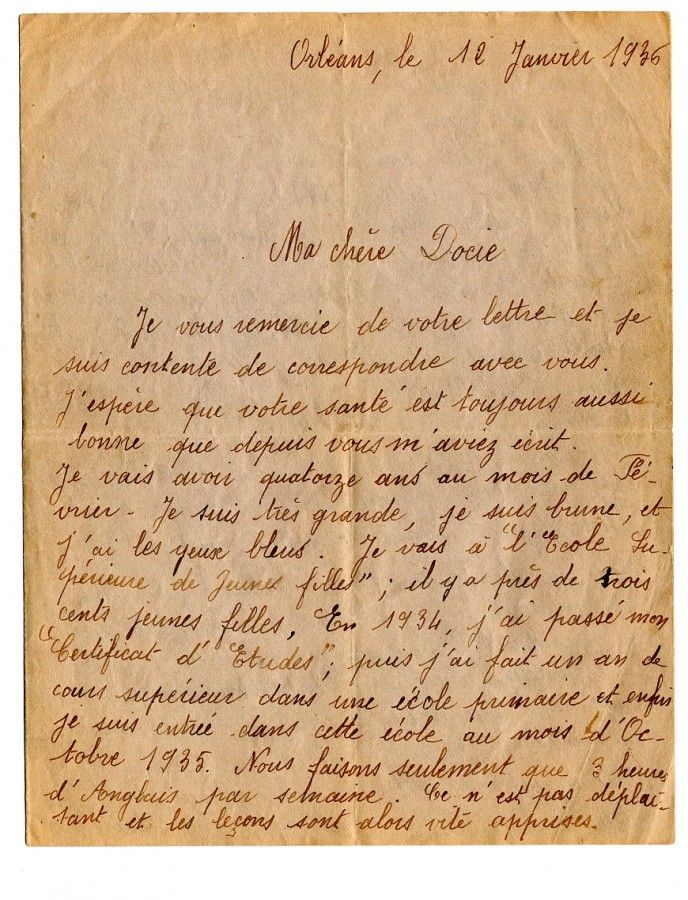 Orléans, le 12 Janvier 1936
Ma chère Docie
Je vous remercie de votre lettre et je
suis contente de correspondre avec vous.
J'espère que votre santé est toujours aussi
bonne que depuis vous m'aviez écrit.
Je vais avoir quatorze ans au mois de Fé-
vrier - Je suis très grande, je suis brune, et
j'ai les yeux bleus. Je vais à "l'Ecole Su-
périeure de Jeunes filles" ; il y a près de trois
cents jeunes filles, En 1934, j'ai passé mon
"Certificat d'Etudes" ; puis j'ai fait un an de
cours supérieur dans une école primaire et enfin
je suis entrée dans cette école au mois d'Oc-
tobre 1935. Nous faisons seulement que 3 heures
d'Anglais par semaine. Ce n'est pas déplai-
sant et les leçons sont alors vite apprises.